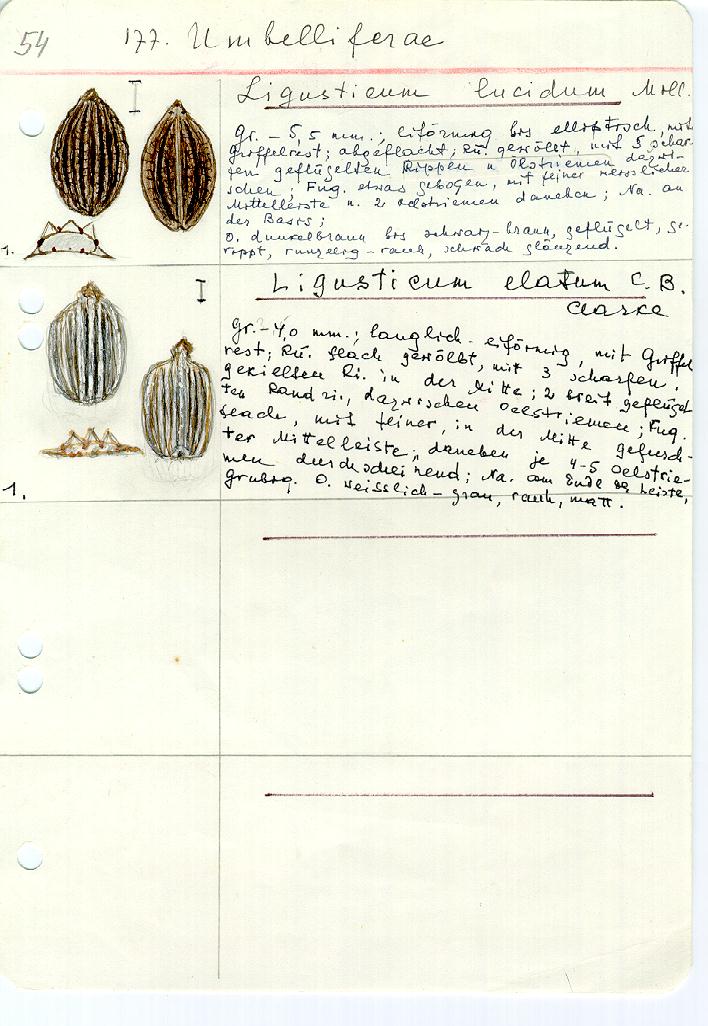 54 177. Umbelliferae
Ligusticum lucidum Mill.
Gr. - 5,5 mm.; eiförmig bis elliptisch, mit
Griffelrest; abgeflacht; Rü. gewölbt, mit 5 schar-
fen geflügelten Rippen u Ölstriemen dazwi-
schen; Fug. etwas gebogen, mit feiner
Mittelleiste u. 2 Oelstriemen daneben; Na. an
der Basis;
O. dunkelbraun bis schwarz-braun, geflügelt, ge-
rippt, runzelig-rauh, schwach glänzend.
1.
Ligusticum elatum C. B.
Clarke
Gr. - 4,0 mm.; länglich-eiförmig, mit Griffel
rest; Rü. flach gewölbt, mit 3 scharfen,
gekielten Ri. in der Mitte; 2 breit geflügel
ten Randri., dazwischen Oelstriemen; Fug.
flach, mit feiner, in der Mitte gefurch-
ter Mittelleiste, daneben je 4-5 Oelstrie-
men durchscheinend; Na. am Ende der Leiste,
grubig. O. weisslich-grau, rauh, matt.
1.